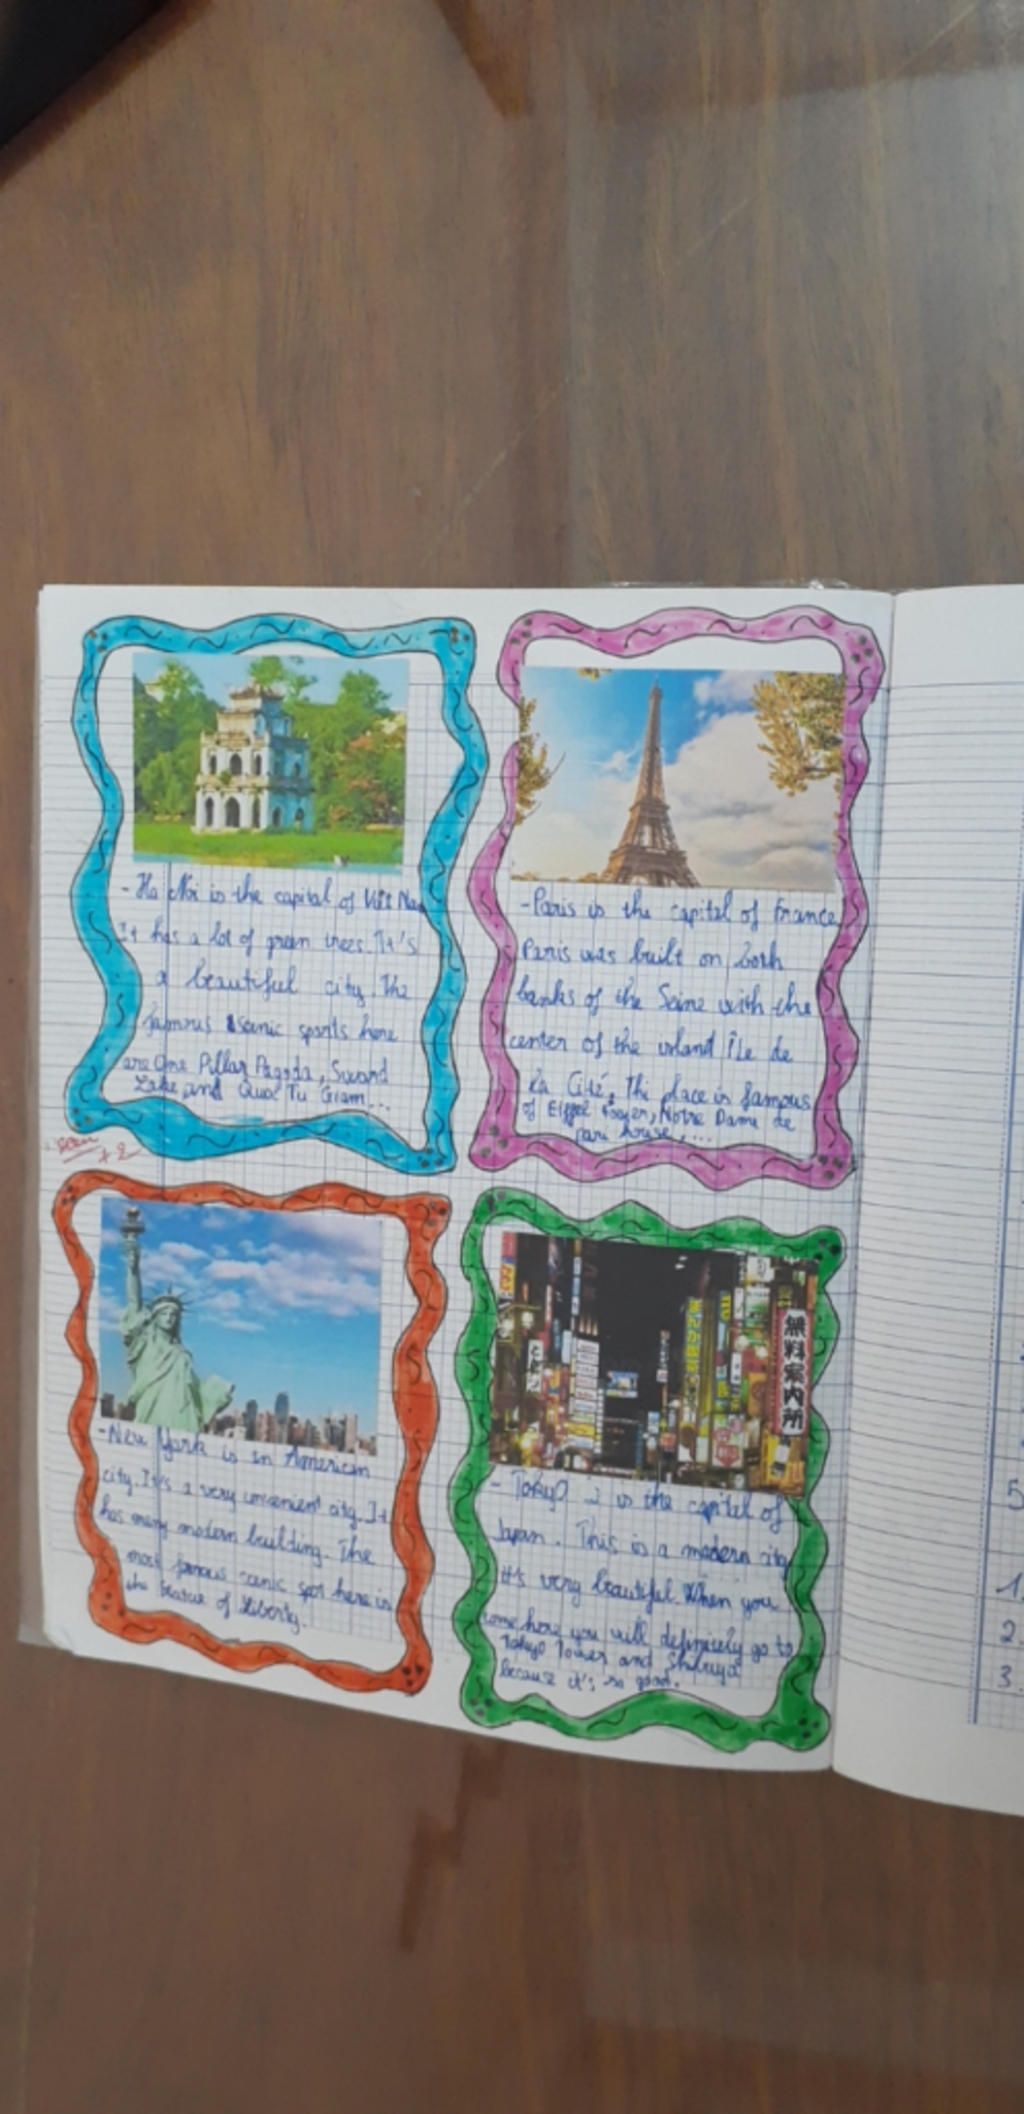 - Ha Noi is the capital of Việt Nam
It has a lot of green trees. It's
a beautiful city. The
famous scenic sports here
are One Pillar Pagoda, Sword
Lake and Quoc Tu Giam...
- Paris is the capital of France
Paris was built on both
banks of the Seine with the
center of the island Île de
La Cité. This place is famous
of Eiffel Tower, Notre Dame de
seen
+2
- New York is an American
city. It's a very convenient city. It
has many modern building. The
most famous scenic spot here is
the Statue of Liberty.
無料案内所
- Tokyo is the capital of
Japan. This is a modern city
It's very beautiful. When you
come here you will definitely go to
Tokyo Tower and Shibuya
because it's so good.
5
1.
2.
3.